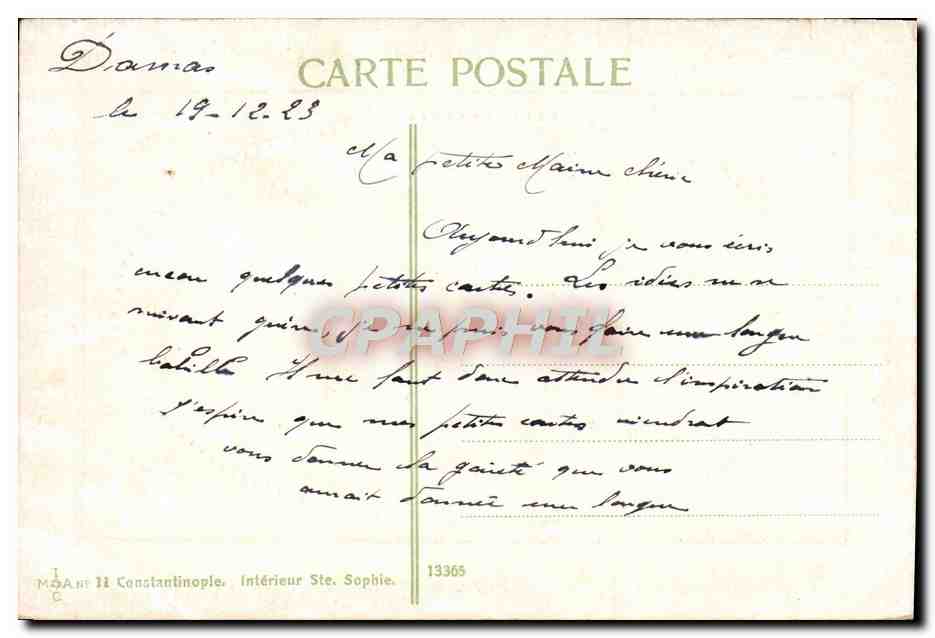 CARTE POSTALE
Damas
le 19-12-23
Ma petite Maine chérie
Aujourd'hui je vous écris
encore quelques petites cartes. Les idées ne se
suivant guère, je ne puis vous faire une longue
babille Il me faut donc attendre l'inspiration
J'espère que mes petites cartes viendrat
vous donner la gaieté que vous
aurait donnée une longue
CPAPHIL
M.J.A. No 11 Constantinople. Intérieur Ste. Sophie.
13365